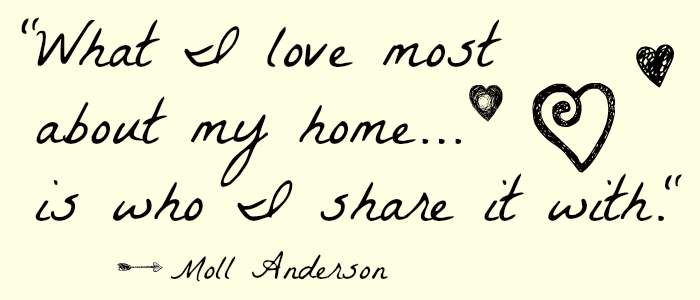 “What I love most
about my home...
is who I share it with.“
Moll Anderson